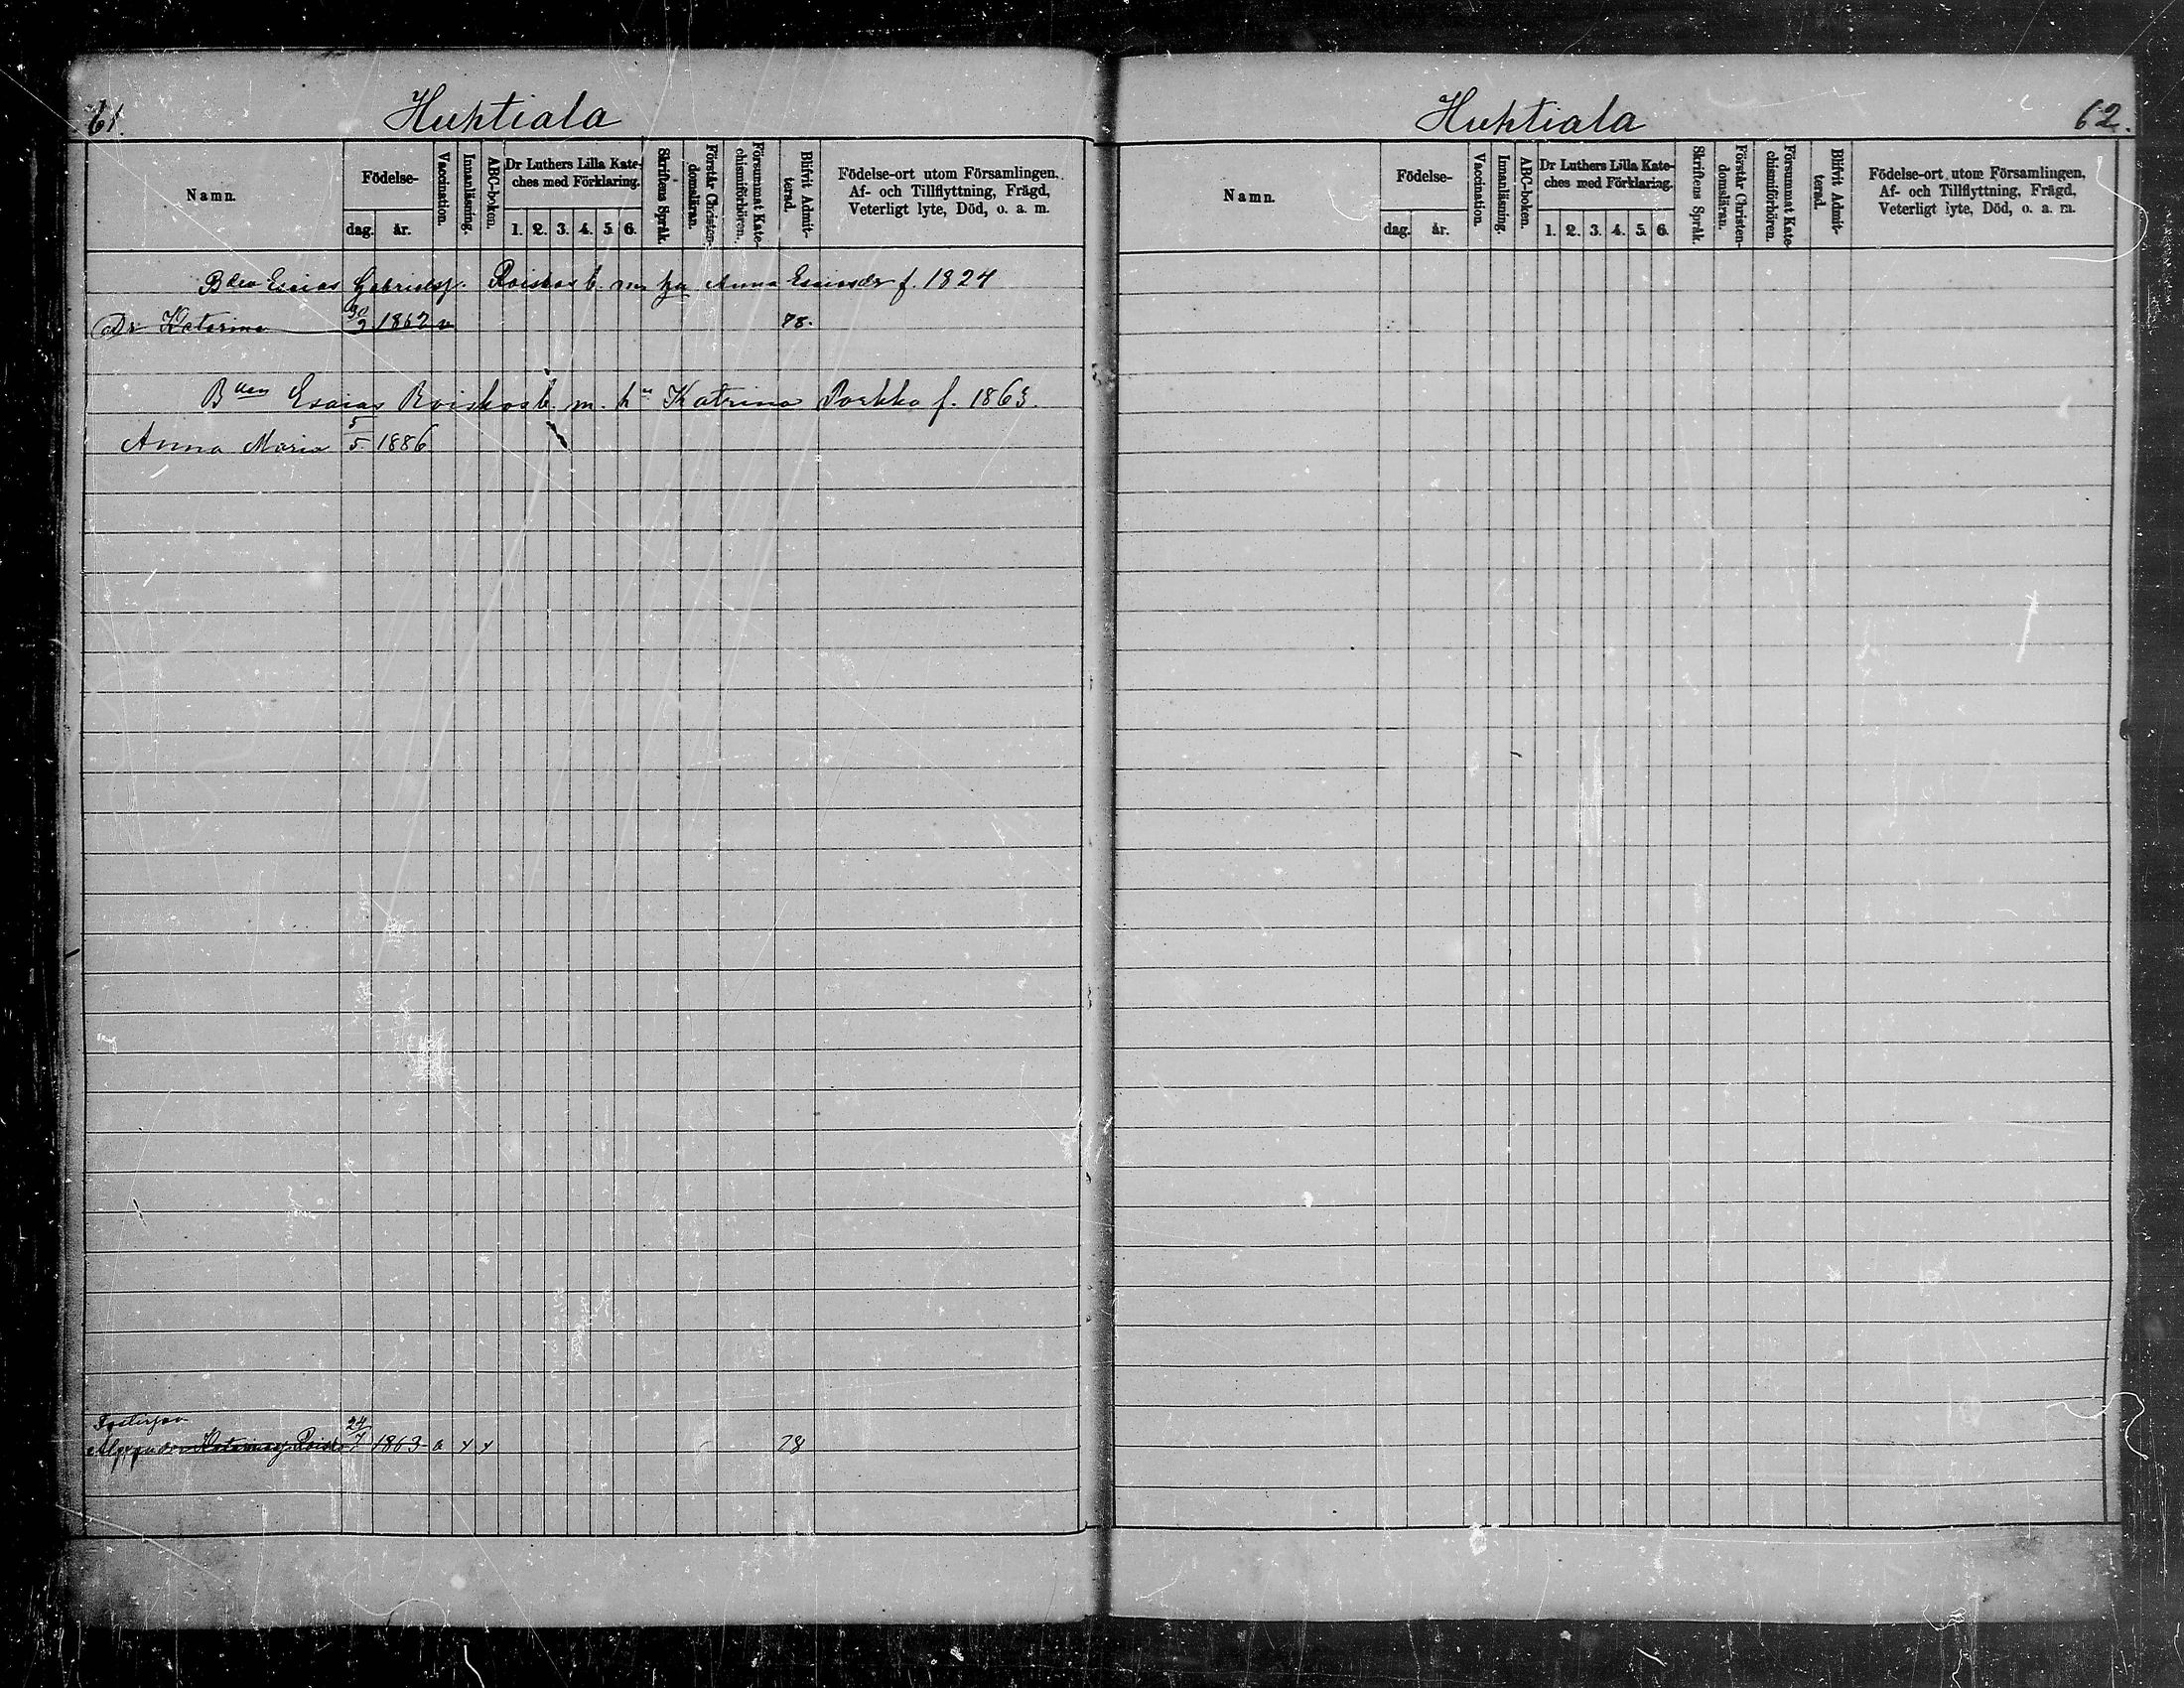 61.
Huhtiala
Namn.
Födelse-
dag. år.
Vaccination.
Innanläsning.
ABC-boken.
Dr Luthers Lilla Kate-
ches med Förklaring.
1. 2. 3. 4. 5. 6.
Skriftens Språk.
Förstår Christen-
domsläran.
Försummat Kate-
chismiförhören.
Blifvit Admit-
terad.
Födelse-ort utom Församlingen,
Af- och Tillflyttning, Frägd,
Veterligt lyte, Död, o. a. m.
Bden Esaias Gabrielsf. Roiskos b. m hu Anna Esaiasdr f. 1824
Dr Katarina 30/9 1862 v 78.
Buen Esaias Roiskos b. m. hu Katrina Porkka f. 1863.
Anna Maria 5/5 1886
Fosterson
24/7 1863 a x x 78
Huhtiala
62.
Namn.
Födelse-
dag. år.
Vaccination.
Innanläsning.
ABC-boken.
Dr Luthers Lilla Kate-
ches med Förklaring.
1. 2. 3. 4. 5. 6.
Skriftens Språk.
Förstår Christen-
domsläran.
Försummat Kate-
chismiförhören.
Blifvit Admit-
terad.
Födelse-ort utom Församlingen,
Af- och Tillflyttning, Frägd,
Veterligt lyte, Död, o. a. m.